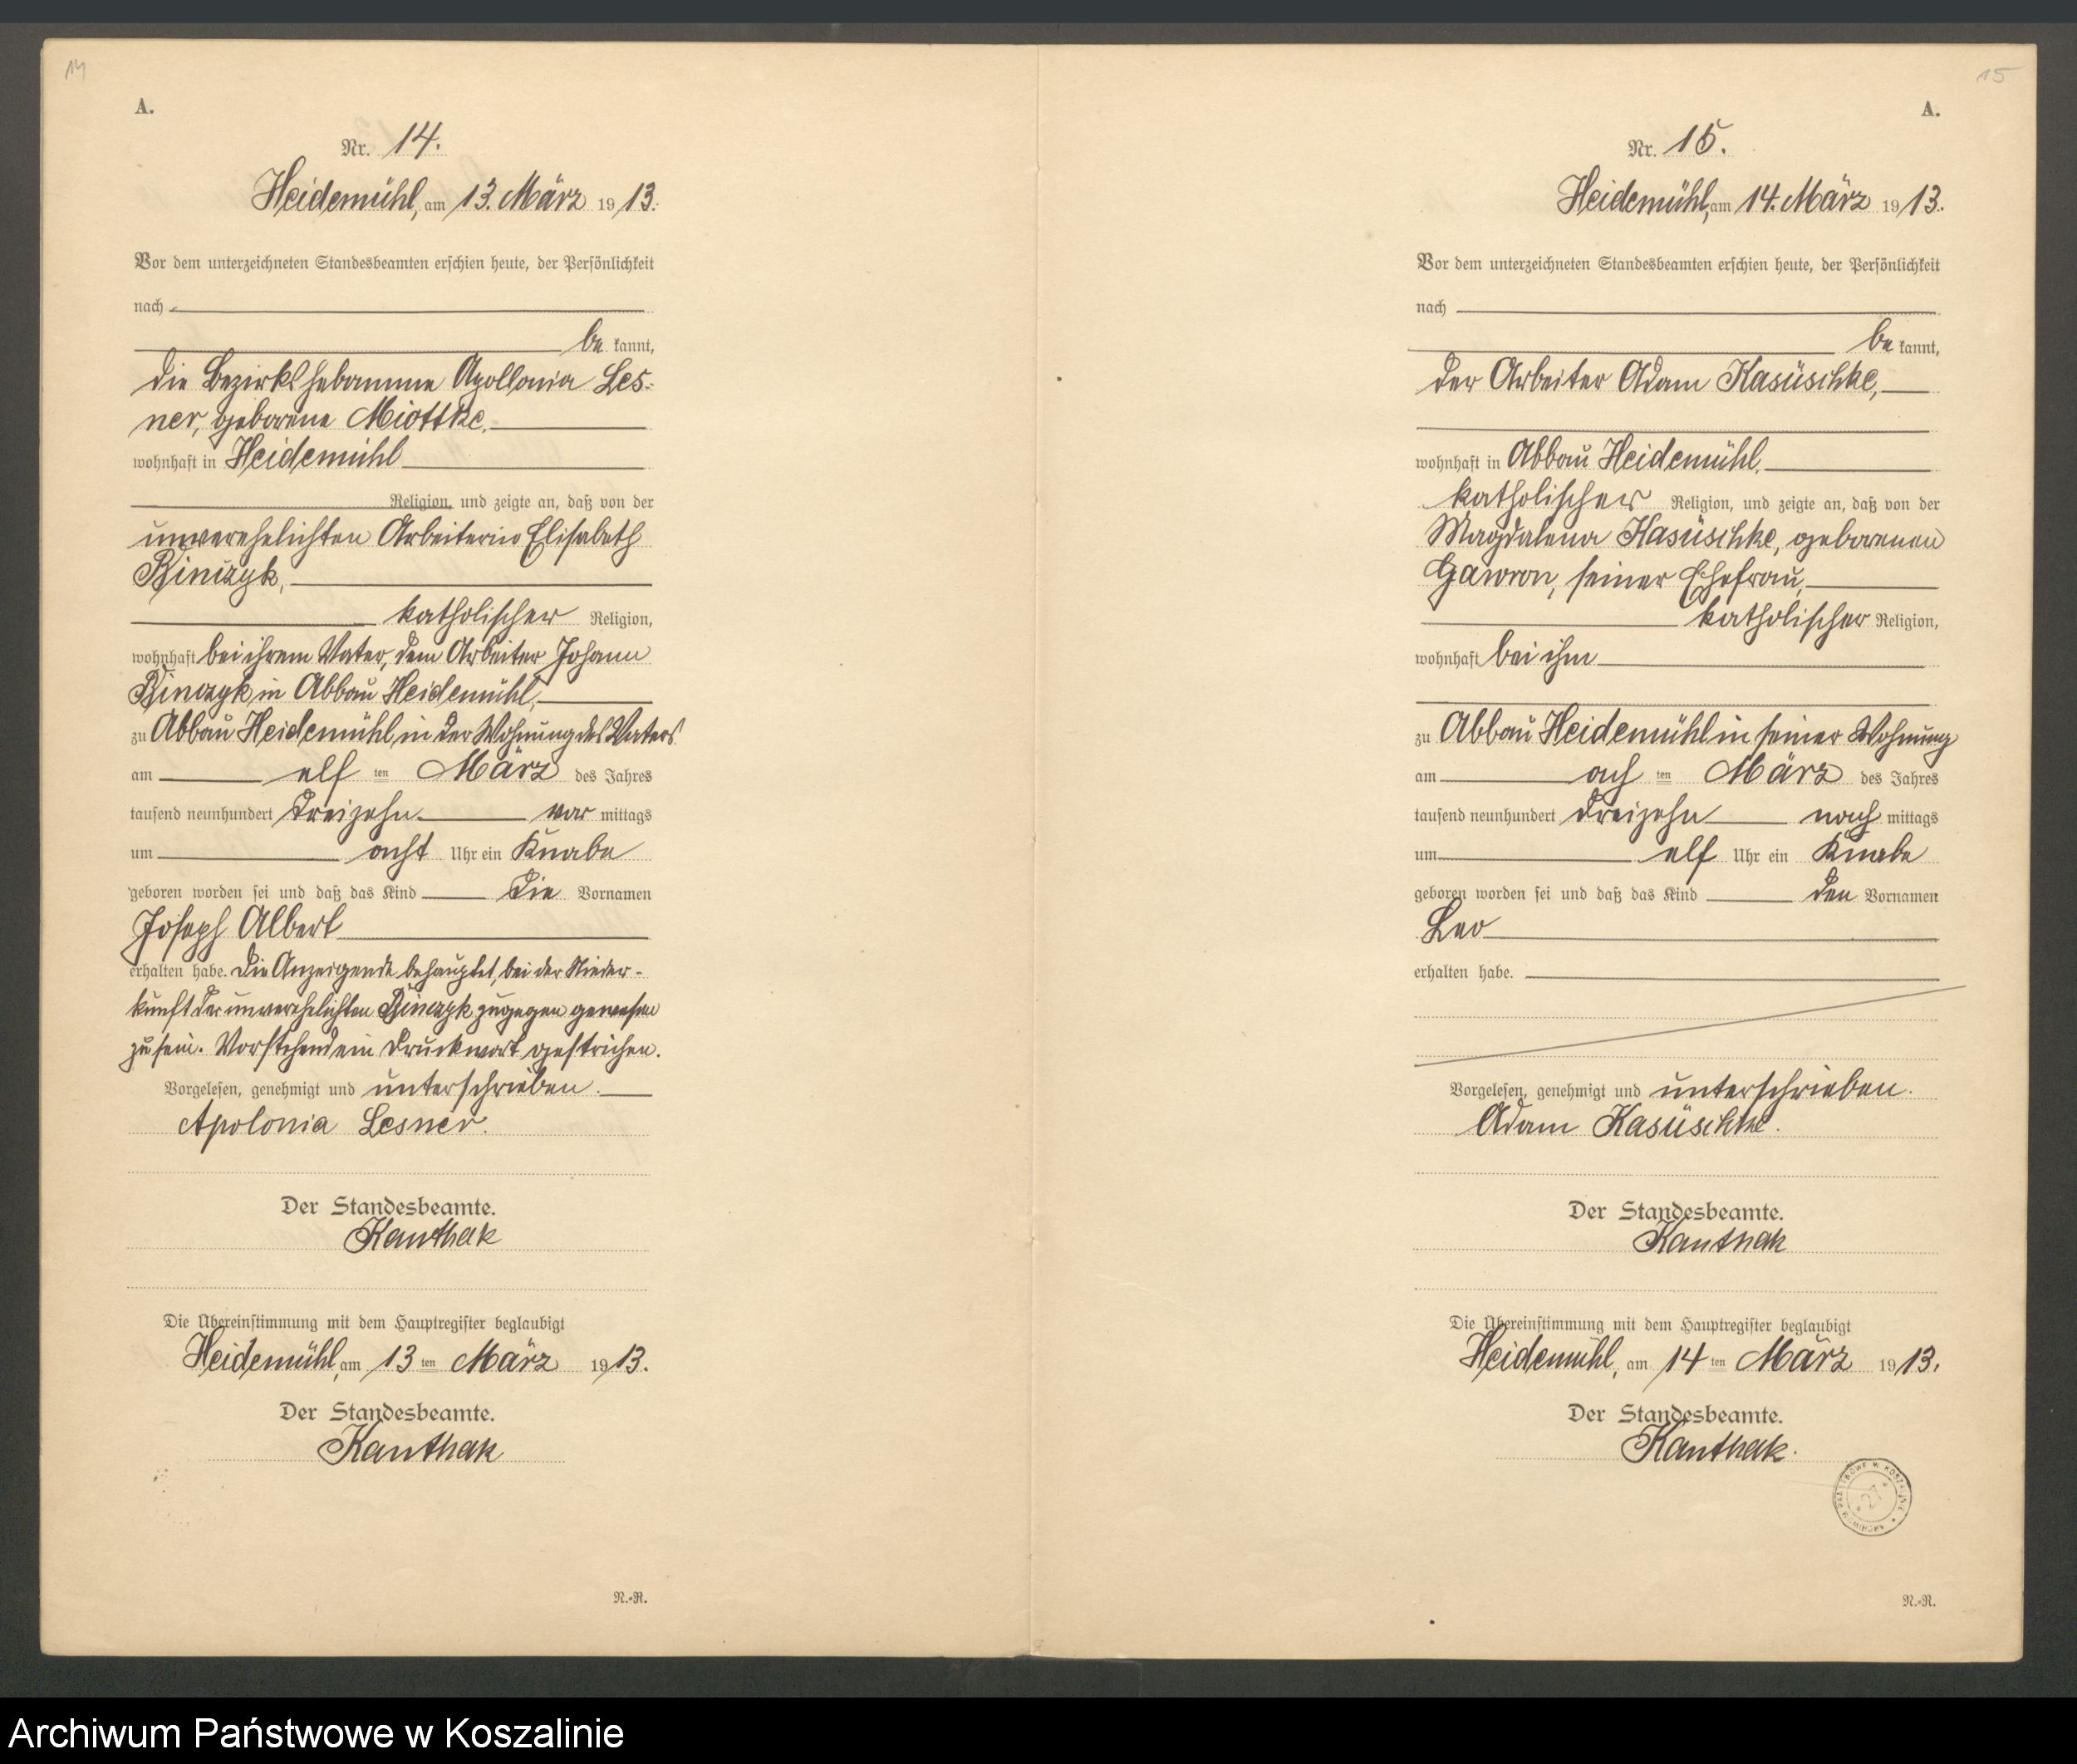 14
A.
Nr. 14.
Heidemühl, am 13. März 1913.
Vor dem unterzeichneten Standesbeamten erschien heute, der Persönlichkeit
nach
be kannt,
die Bezirkshebamme Apollonia Les-
ner, geborene Miottke,
wohnhaft in Heidemühl
Religion, und zeigte an, daß von der
unverehelichten Arbeiterin Elisabeth
Binczyk,
katholischer Religion,
wohnhaft bei ihrem Vater, dem Arbeiter Johann
Binczyk in Abbau Heidemühl,
zu Abbau Heidemühl, in der Wohnung des Vaters
am elf ten März des Jahres
tausend neunhundert dreizehn vor mittags
um acht Uhr ein Knabe
geboren worden sei und daß das Kind die Vornamen
Joseph Albert
erhalten habe. Die Anzeigende behauptet, bei der Nieder-
kunft der unverehelichten Binczyk zugegen gewesen
zu sein. Vorstehend ein Druckwort gestrichen.
Vorgelesen, genehmigt und unterschrieben.
Apolonia Lesner.
Der Standesbeamte.
Kanthak
Die Übereinstimmung mit dem Hauptregister beglaubigt
Heidemühl, am 13 ten März 1913.
Der Standesbeamte.
Kanthak
N.-R.
15
A.
Nr. 15.
Heidemühl, am 14. März 1913.
Vor dem unterzeichneten Standesbeamten erschien heute, der Persönlichkeit
nach
be kannt,
der Arbeiter Adam Kasüschke,
wohnhaft in Abbau Heidemühl,
katholischer Religion, und zeigte an, daß von der
Magdalena Kasüschke, geborenen
Gawron, seiner Ehefrau,
katholischer Religion,
wohnhaft bei ihm
zu Abbau Heidemühl in seiner Wohnung
am ach ten März des Jahres
tausend neunhundert dreizehn nach mittags
um elf Uhr ein Knabe
geboren worden sei und daß das Kind den Vornamen
Leo
erhalten habe.
Vorgelesen, genehmigt und unterschrieben.
Adam Kasüschke.
Der Standesbeamte.
Kanthak
Die Übereinstimmung mit dem Hauptregister beglaubigt
Heidemühl, am 14 ten März 1913.
Der Standesbeamte.
Kanthak.
ARCHIWUM PAŃSTWOWE W KOSZALINIE
27
N.-R.
Archiwum Państwowe w Koszalinie